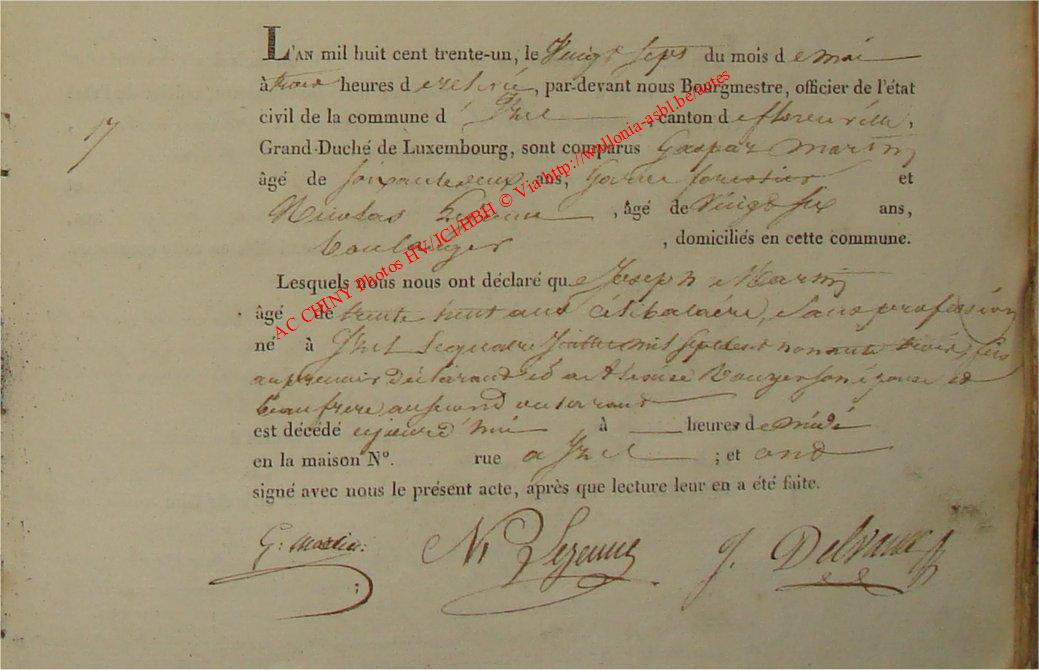 L'AN mil huit cent trente-un, le Vingt sept du mois d e Mai
à trois heures d e relevé, par-devant nous Bourgmestre, officier de l'état
civil de la commune d' Izel, canton d e florenville,
17
Grand-Duché de Luxembourg, sont comparus Gaspar Martin
âgé de soixante deux ans, Garde forestier et
Nicolas Lejeune, âgé de Vingt six ans,
Boulanger, domiciliés en cette commune.
Lesquels nous nous ont déclaré que Joseph Martin
âgé de trente huit ans célibataire, Sans profession
né à Izel Le quatre mil sept cent nonante trois, fils
au premier Déclarant et a son épouse et
beau frere au second declarant
est décédé aujourd'hui à heures de midi
en la maison N°. rue a Izel ; et ont
signé avec nous le présent acte, après que lecture leur en a été faite.
G: Martin. N Lejeune J. Delvaux
AC CHINY Photos HV/JCl/HBH © Via http://wallonia-asbl.be/antes